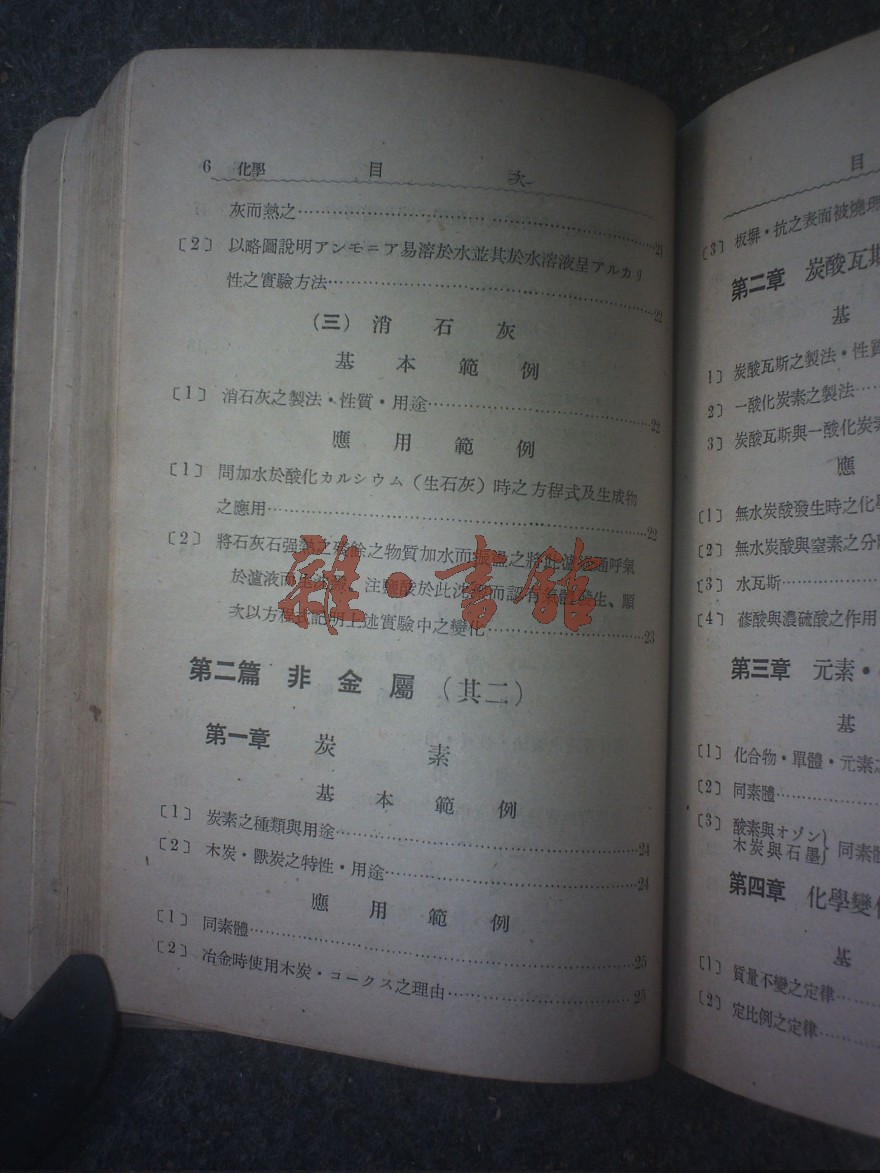 6 化學 目 次
灰而熱之……21
〔2〕 以略圖說明アンモニア易溶於水並其於水溶液呈アルカリ
性之實驗方法……22
(三) 消 石 灰
基 本 範 例
〔1〕 消石灰之製法・性質・用途……22
應 用 範 例
〔1〕 問加水於酸化カルシウム(生石灰)時之方程式及生成物
之應用……22
〔2〕 將石灰石强熱之殘餘之物質加水而振盪之將此濾過通呼氣
於濾液而生沈澱、注鹽酸於此沈澱而認有氣體發生、順
次以方程式記明上述實驗中之變化……23
第二篇 非 金 屬 (其二)
第一章 炭 素
基 本 範 例
〔1〕 炭素之種類與用途……24
〔2〕 木炭・獸炭之特性・用途……24
應 用 範 例
〔1〕 同素體……25
〔2〕 冶金時使用木炭・コークス之理由……25
雜・書館
目
〔3〕 板塀・抗之表面被燒
第二章 炭酸瓦斯
基
1〕 炭酸瓦斯之製法・性質
2〕 一酸化炭素之製法……
3〕 炭酸瓦斯與一酸化炭素
應
〔1〕 無水炭酸發生時之化學
〔2〕 無水炭酸與窒素之分
〔3〕 水瓦斯……
〔4〕 蓚酸與濃硫酸之作用
第三章 元素・
基
〔1〕 化合物・單體・元素之
〔2〕 同素體……
〔3〕 酸素與オゾン
木炭與石墨} 同素體
第四章 化學變化
基
〔1〕 質量不變之定律……
〔2〕 定比例之定律……